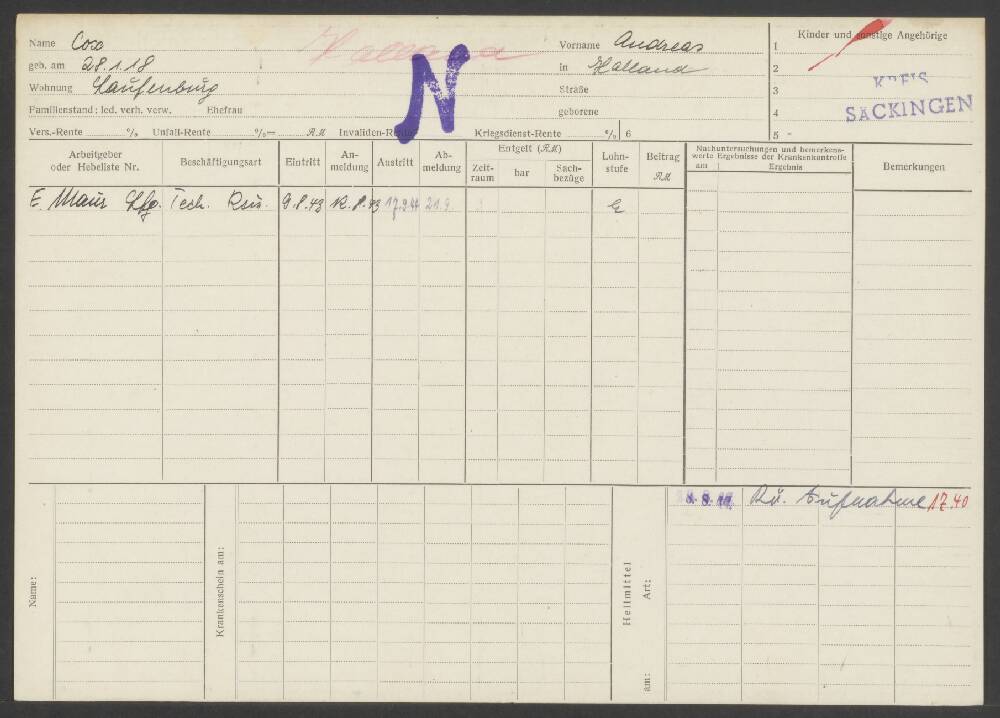 Name Cox Holland Vorname Andreas
geb. am 28.1.18 in Holland
Wohnung Laufenburg Straße
Familienstand: led. verh. verw. Ehefrau geborene
Vers.-Rente % Unfall-Rente %— RM Invaliden-Rente Kriegsdienst-Rente % 6
N
Kinder und sonstige Angehörige
1
2
3
4
5 -
KREIS
SÄCKINGEN
Arbeitgeber oder Hebeliste Nr. Beschäftigungsart Eintritt An-meldung Austritt Ab-meldung Entgelt (RM) Zeit-raum bar Sach-bezüge Lohn-stufe Beitrag RM
Nachuntersuchungen und bemerkens-
werte Ergebnisse der Krankenkontrolle
am Ergebnis
Bemerkungen
E. Maur Lfg. Tech. 9.8.43 12.8.43 17.9.44 21.9.
Name:
Krankenschein am:
Heilmittel
Art:
am:
8.9.44 Rü. Aufnahme 17.40